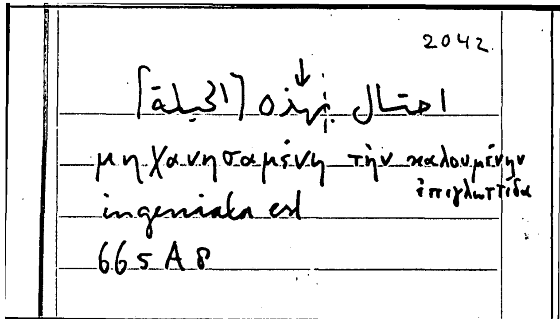 2042
احتال بهذه [الحيلة]
μηχανησαμένη τὴν καλουμένην
ἐπιγλωττίδα
ingeniata est
665 A 8